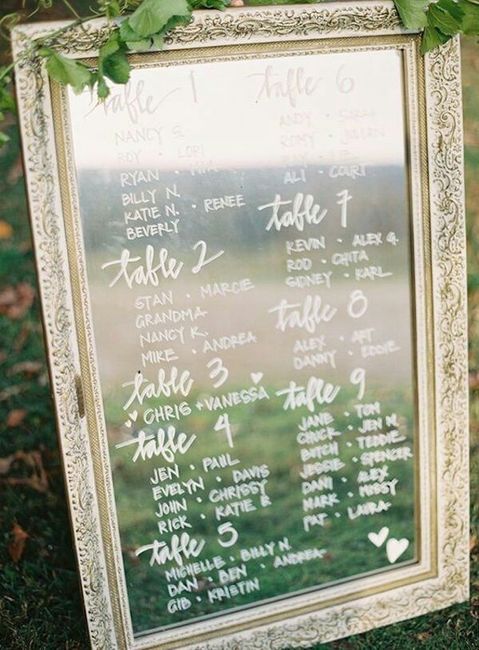 table 1
NANCY S.
ROY • LORI
RYAN •
BILLY N.
KATIE N. • RENEE
BEVERLY
table 2
STAN • MARCIE
GRANDMA
NANCY K.
MIKE • ANDREA
table 3
CHRIS + VANESSA
table 4
JEN • PAUL
EVELYN • DAVIS
JOHN • CHRISSY
RICK • KATIE B
table 5
MICHELLE • BILLY N.
DAN • BEN • ANDREA
GIB • KRISTIN
table 6
ANDY • SARAH
ROMY •
ALI • COURT
table 7
KEVIN • ALEX G.
ROD • CHITA
SIDNEY • KARL
table 8
ALEX • ART
DANNY • EDDIE
table 9
JANE • TOM
CHUCK • JEN M.
BUTCH • TEDDIE
JESSIE • SPENCER
DANI • ALEX
MARK • MISSY
PAT • LAURA